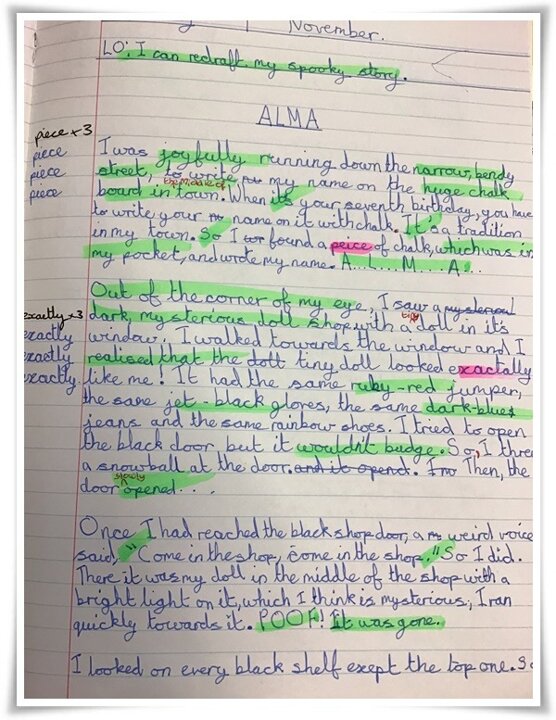 November.
LO: I can redraft my spooky story.
ALMA
piece x 3
piece
piece
piece
I was joyfully running down the narrow, bendy
street, to write my name on the huge chalk
the middle of
board in town. When it's your seventh birthday, you have
to write your name on it with chalk. It's a tradition
in my town. So I found a peice of chalk, which was in
my pocket, and wrote my name. A... L... M... A...
exactly x 3
exactly
exactly
exactly.
Out of the corner of my eye, I saw a mysterious
dark, mysterious doll shop with a doll in it's
tiny
window. I walked towards the window and I
realised that the doll tiny doll looked exactally
like me! It had the same ruby-red jumper,
the same jet-black gloves, the same dark-blue
jeans and the same rainbow shoes. I tried to open
the black door but it wouldn't budge. So, I threw
a snowball at the door. and it opened. Then, the
slowly
door opened....
Once I had reached the black shop door, a weird voice
said, "Come in the shop, come in the shop," So I did.
There it was my doll in the middle of the shop with a
bright light on it, which I think is mysterious, I ran
quickly towards it. POOF! It was gone.
I looked on every black shelf exept the top one. So